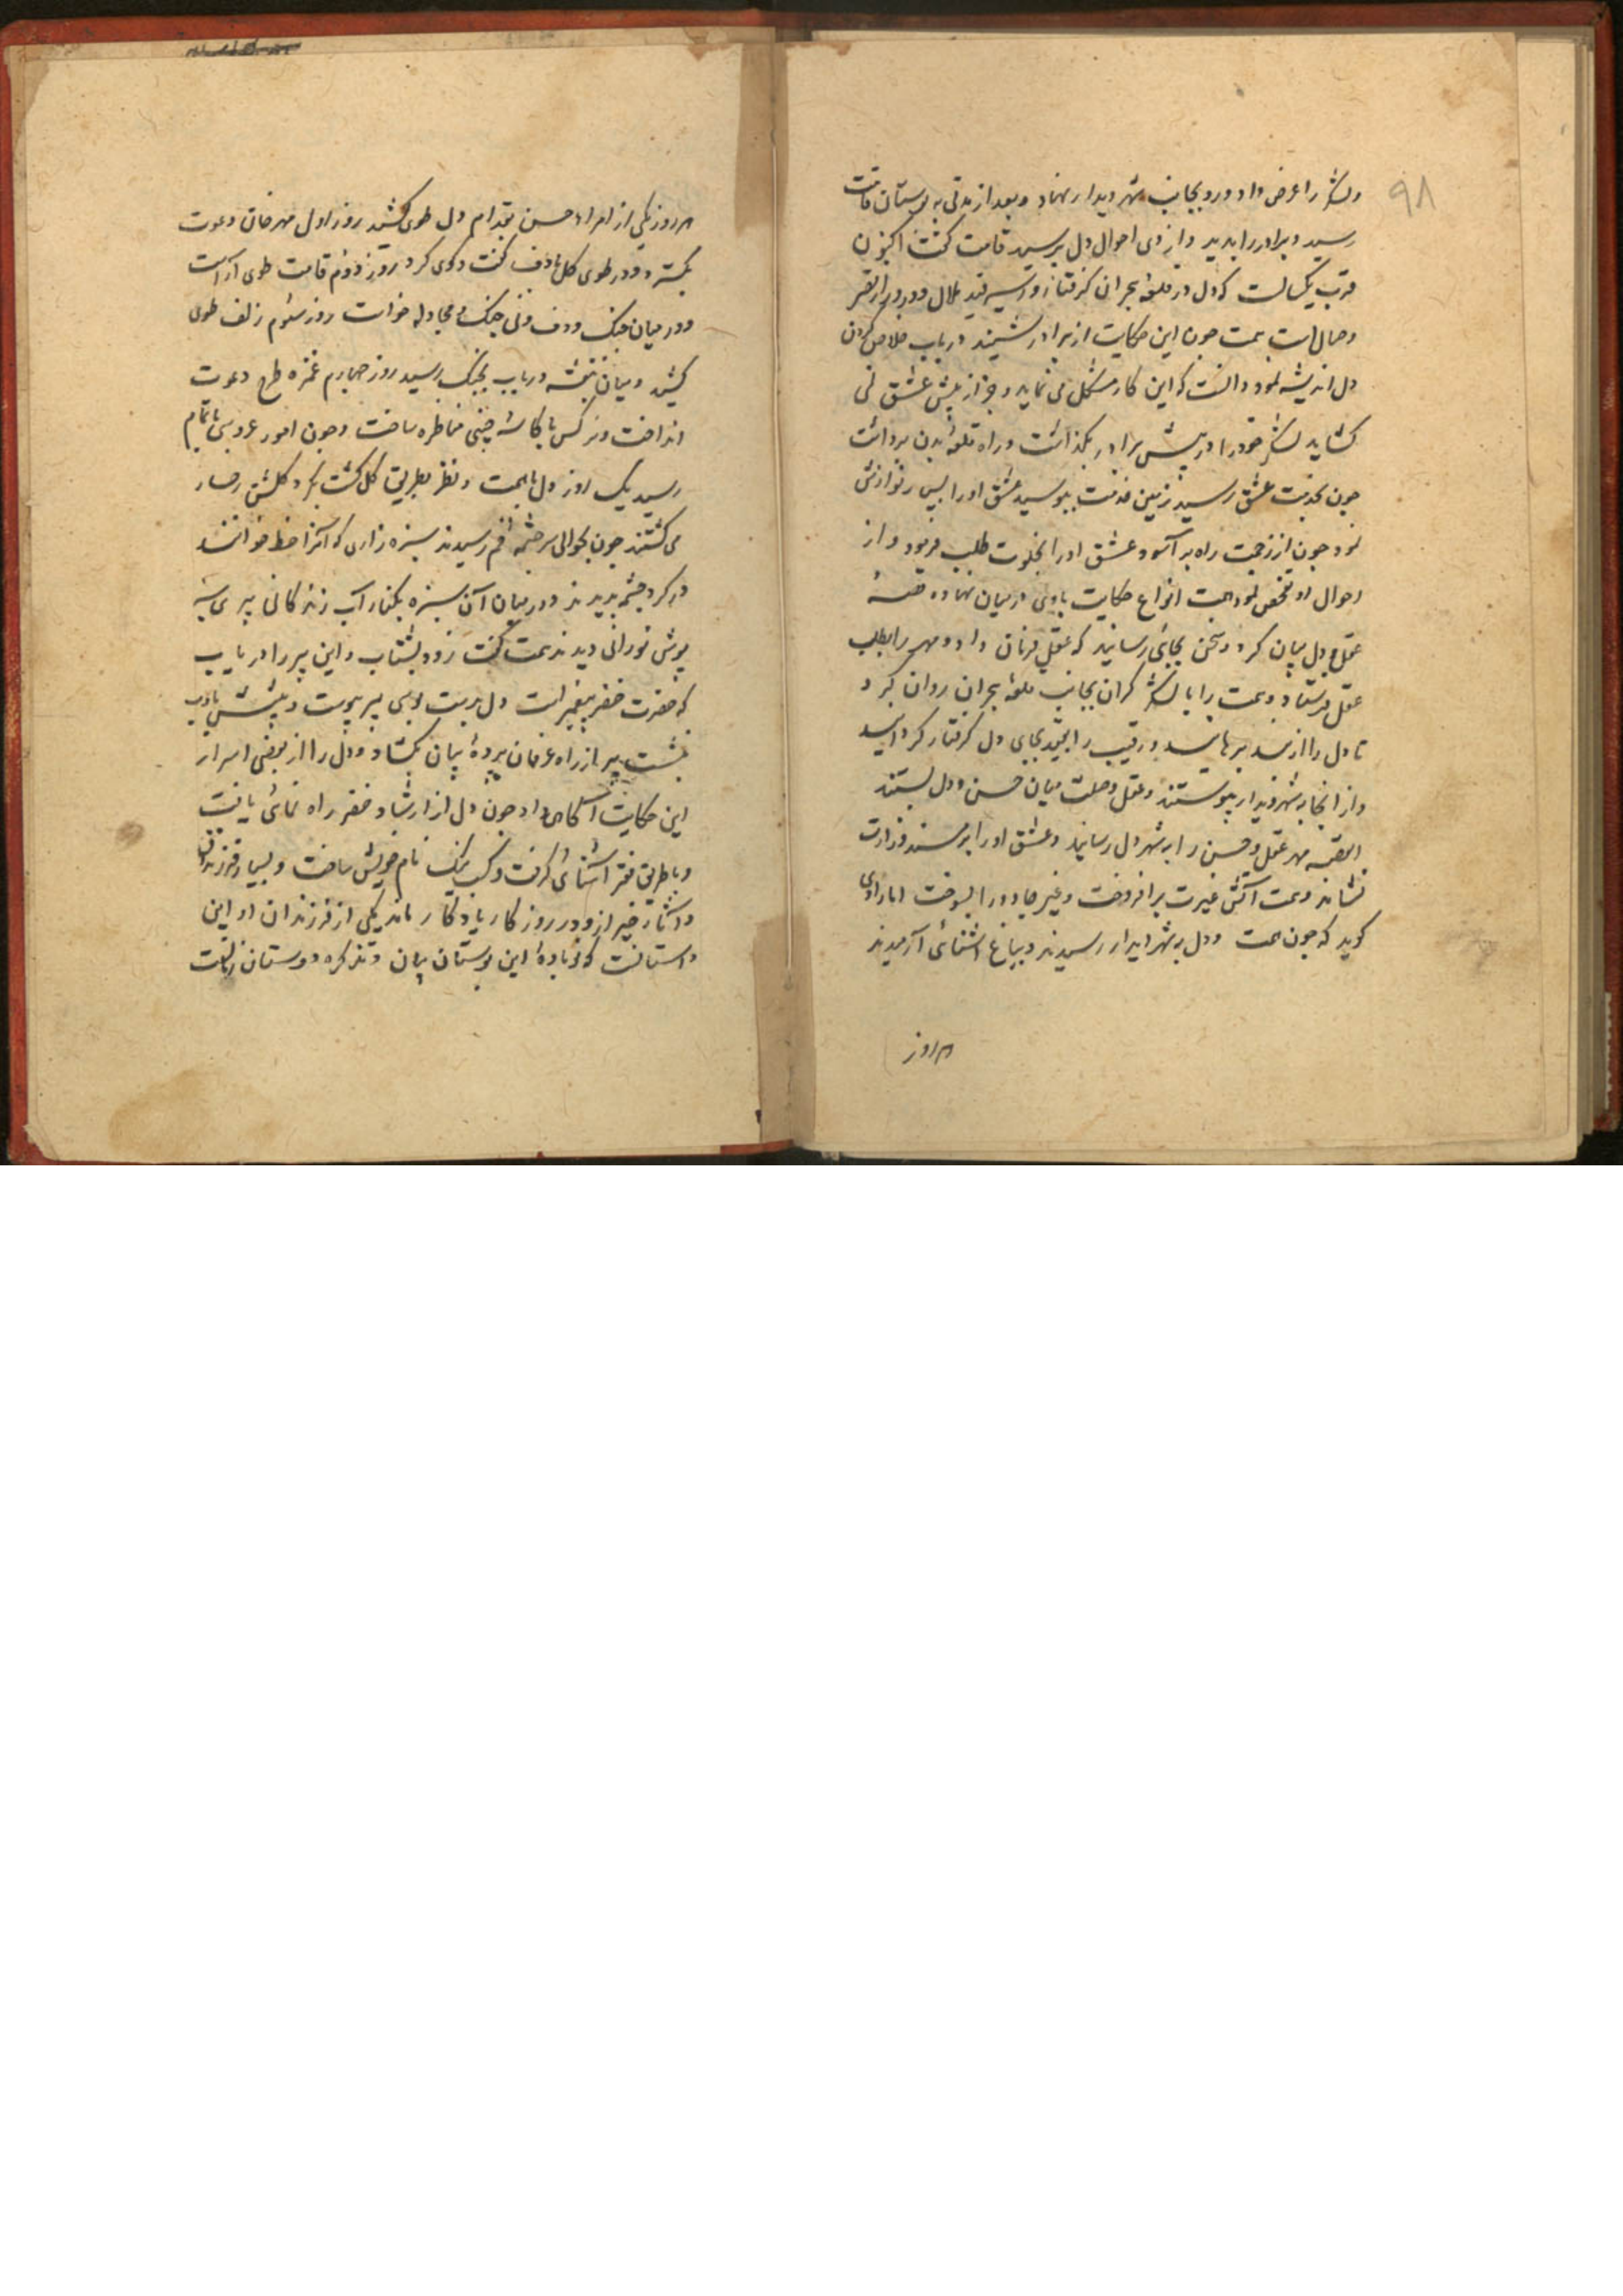 ۹۸
ولشکر را عرض داد و رو بجانب شهر دیدار نهاد و بعد از مدتی به بوستان قامت
رسید و برادر را بدید و از وی احوال دل پرسید قامت گفت اکنون
قرب یکسالست که دل در قلعهٔ هجران گرفتار و اسیر قید ملال و دور از قصر
وصال است همت چون این حکایت از برادر شنید در باب خلاص کردن
دل اندیشه نمود دانست که این کار مشکل می نماید و جز از پیش عشق نمی
کشاید لشکر خود را در پیش برادر بگذاشت و راه قلعهٔ بدن برداشت
چون بخدمت عشق رسید زمین خدمت ببوسید عشق او را بسی نوازش
نمود چون از زحمت راه بر آسود عشق او را بخلوت طلب فرمود و از
احوال او تفحص نمود همت انواع حکایت با وی در میان نهاد و قصهٔ
عقل و دل بیان کرد و سخن بجائی رسانید که عشق فرمان داد و مهر را بطلب
عقل فرستاد و همت را با لشکر گران بجانب قلعهٔ هجران روان کرد
تا دل را از بند برهانید و رقیب را بقید بجای دل گرفتار گردانید
و از انجا بشهر دیدار پیوستند و عقد وصلت میان حسن و دل بستند
القصه مهر عقل و حسن را به شهر دل رسانید و عشق او را بر مسند وزارت
نشاند و همت آتش غیرت بر افروخت و غیر جادو را بسوخت اما راوی
گوید که چون همت و دل به شهر دیدار رسیدند و بباغ آشنائی آرمیدند
هر روز
هر روز یکی از امراء حسن بقدام دل طوی کشید روز اول مهر خان دعوت
بگسترد و در طوی گل با دف گفت و گوی کرد روز دوم قامت طوی آراست
و در میان چنگ و دف و نی جنگ و مجادله خواست روز سئوم زلف طوی
کشید و میان بنفشه و رباب بجنگ رسید روز چهارم غمزه طرح دعوت
انداخت و نرگس با کاسهٔ چینی مناظره ساخت و چون امور عروسی باتمام
رسید یک روز دل با همت و نظر بطریق گل گشت بگرد گلشن رخسار
می گشتند چون بحوالی سر چشمهٔ فم رسیدند سبزه زاری که آنرا خط خوانند
در گرد چشمه بدیدند و در میان آن سبزه بکنار آب زندگانی پیری سبز
پوش نورانی دیدند همت گفت زود بشتاب و این پیر را در یاب
که حضرت خضر پیغمبر است دل بدست بوسی پیر پیوست و پیشش بادب
بنشست پیر از راه عرفان پردهٔ بیان بگشاد و دل را از بعضی اسرار
این حکایت آگاهی داد چون دل از ارشاد خضر راه نمائی یافت
و با طریق فقر آشنائی گرفت و کسب نیک نام خویش ساخت و بسیار فرزندان
و آثار خیر از و در روزگار یادگار ماند یکی از فرزندان او این
داستانست که نوبادهٔ این بوستان بیان و تذکره دوستان زمانست